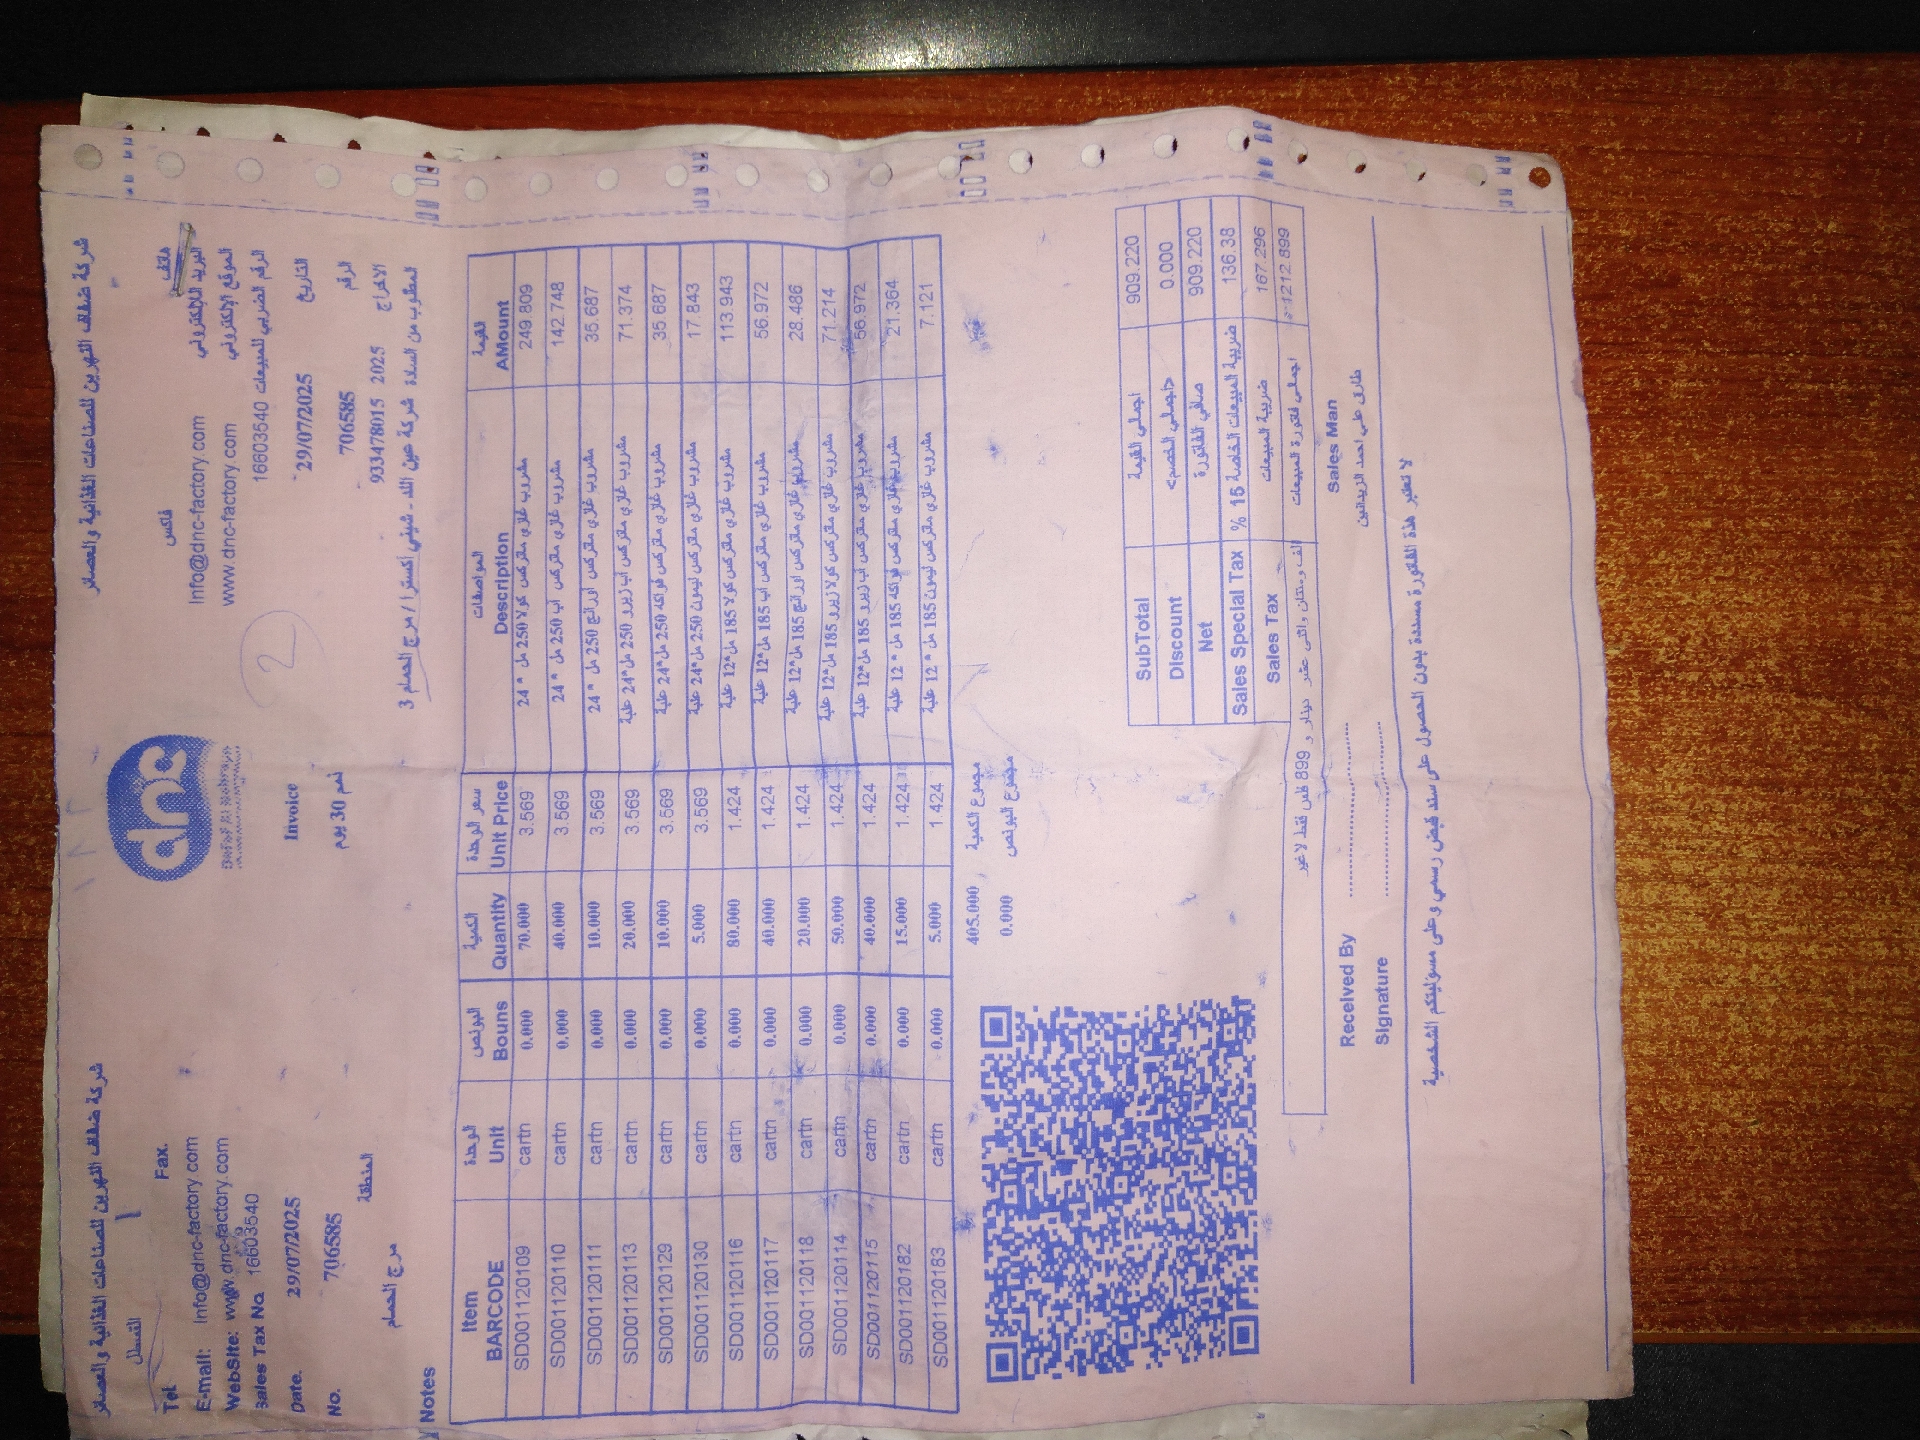 شركة ضفاف النهرين للصناعات الغذائية والعصائر
شركة ضفاف النهرين للصناعات الغذائية والعصائر
القسطل
dnc
Tel.
Fax.
فاكس
هاتف
E-mail: Info@dnc-factory.com
Info@dnc-factory.com البريد الالكتروني
WebSite: www.dnc-factory.com
www.dnc-factory.com الموقع الإلكتروني
Sales Tax No 16603540
16603540 الرقم الضريبي للمبيعات
2
Date. 29/07/2025
Invoice
29/07/2025 التاريخ
No. 706585
ذمم 30 يوم
706585 الرقم
المنطقة
933478015 2025
مرج الحمام
المطلوب من السادة شركة عين الله - شيني اكسترا / مرج الحمام 3
Notes
Item BARCODE | الوحدة Unit | البونص Bouns | الكمية Quantity | سعر الوحدة Unit Price | المواصفات Description | القيمة AMount
SD001120109 cartn 0.000 70.000 3.569 مشروب غازي متركس كولا 250 مل * 24 249.809
SD001120110 cartn 0.000 40.000 3.569 مشروب غازي متركس اب 250 مل * 24 142.748
SD001120111 cartn 0.000 10.000 3.569 مشروب غازي متركس اورانج 250 مل * 24 35.687
SD001120113 cartn 0.000 20.000 3.569 مشروب غازي متركس اب زيرو 250 مل*24 علبة 71.374
SD001120129 cartn 0.000 10.000 3.569 مشروب غازي متركس فواكه 250 مل*24 علبة 35.687
SD001120130 cartn 0.000 5.000 3.569 مشروب غازي متركس ليمون 250 مل*24 علبة 17.843
SD001120116 cartn 0.000 80.000 1.424 مشروب غازي متركس كولا 185 مل*12 علبة 113.943
SD001120117 cartn 0.000 40.000 1.424 مشروب غازي متركس اب 185 مل*12 علبة 56.972
SD001120118 cartn 0.000 20.000 1.424 مشروب غازي متركس اورانج 185 مل*12 علبة 28.486
SD001120114 cartn 0.000 50.000 1.424 مشروب غازي متركس كولا زيرو 185 مل*12 علبة 71.214
SD001120115 cartn 0.000 40.000 1.424 مشروب غازي متركس اب زيرو 185 مل*12 علبة 56.972
SD001120182 cartn 0.000 15.000 1.424 مشروب غازي متركس فواكه 185 مل * 12 علبة 21.364
SD001120183 cartn 0.000 5.000 1.424 مشروب غازي متركس ليمون 185 مل * 12 علبة 7.121
405.000 مجموع الكمية
0.000 مجموع البونص
SubTotal اجمالي القيمة 909.220
Discount <اجمالي الخصم> 0.000
Net صافي الفاتورة 909.220
Sales Special Tax % 15 ضريبة المبيعات الخاصة 136.38
Sales Tax ضريبة المبيعات 167.296
الف ومئتان واثنى عشر دينار و 899 فلس فقط لا غير
اجمالي فاتورة المبيعات 1212.899
Received By
Sales Man
Signature
طارق علي احمد الزيدانين
لا تعتبر هذة الفاتورة مسددة بدون الحصول على سند قبض رسمي وعلى مسوليتكم الشخصية